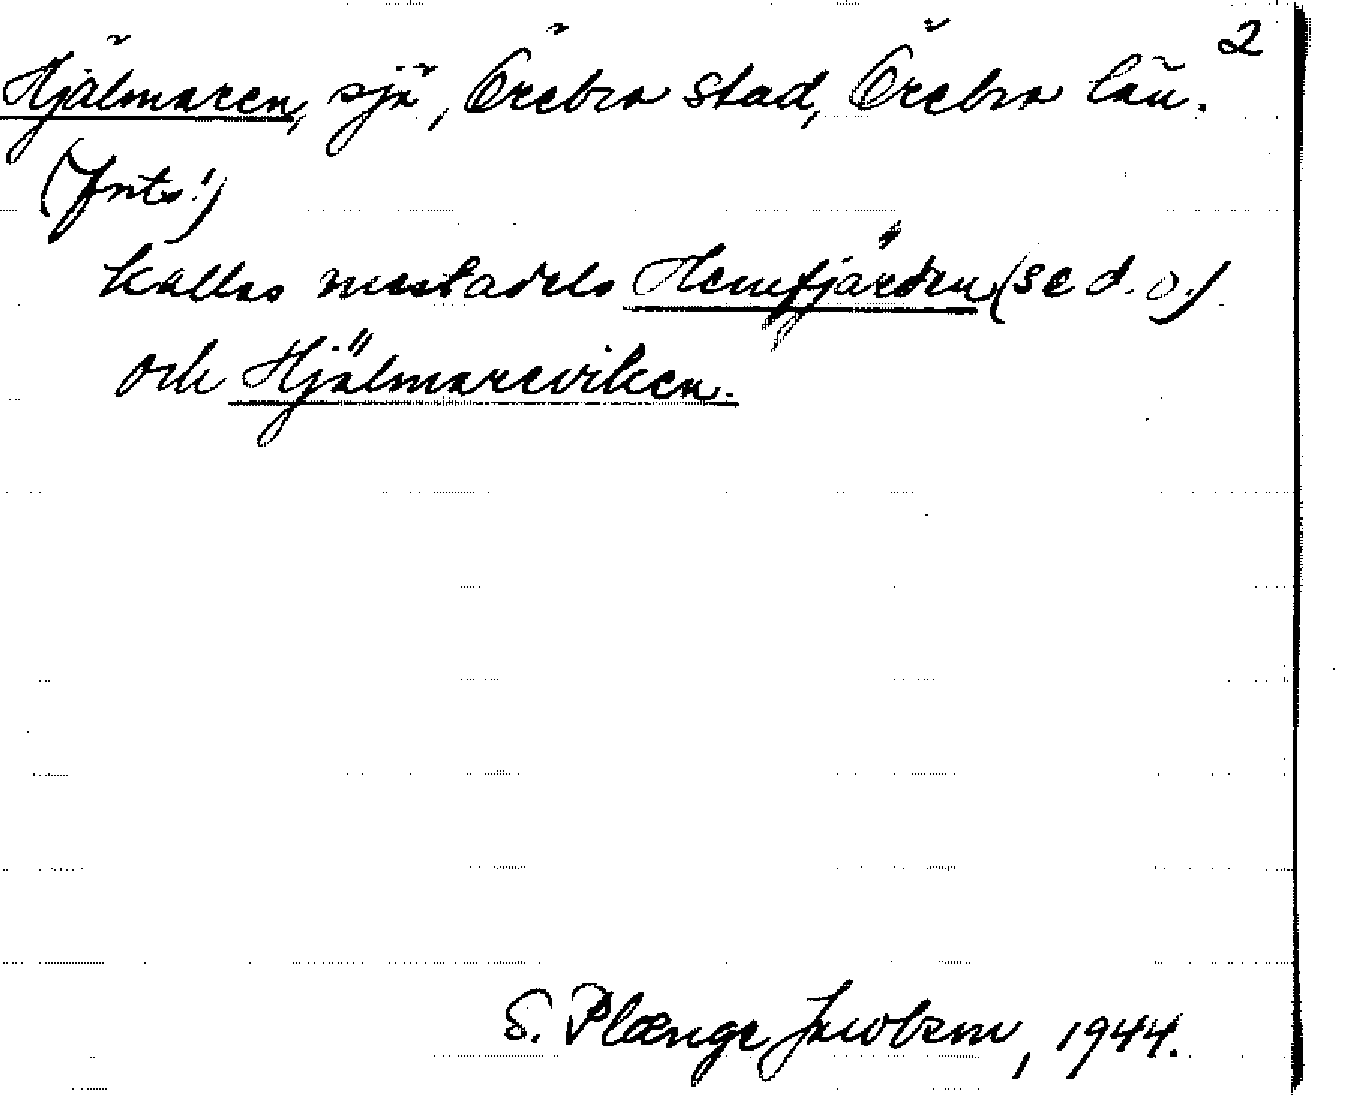 2
Hjälmaren, sjö, Örebro stad, Örebro län.
(Forts.)
kallas mestadels Hemfjärden (se d. o.)
och Hjälmareviken.
S. Plænge Jacobson, 1944.